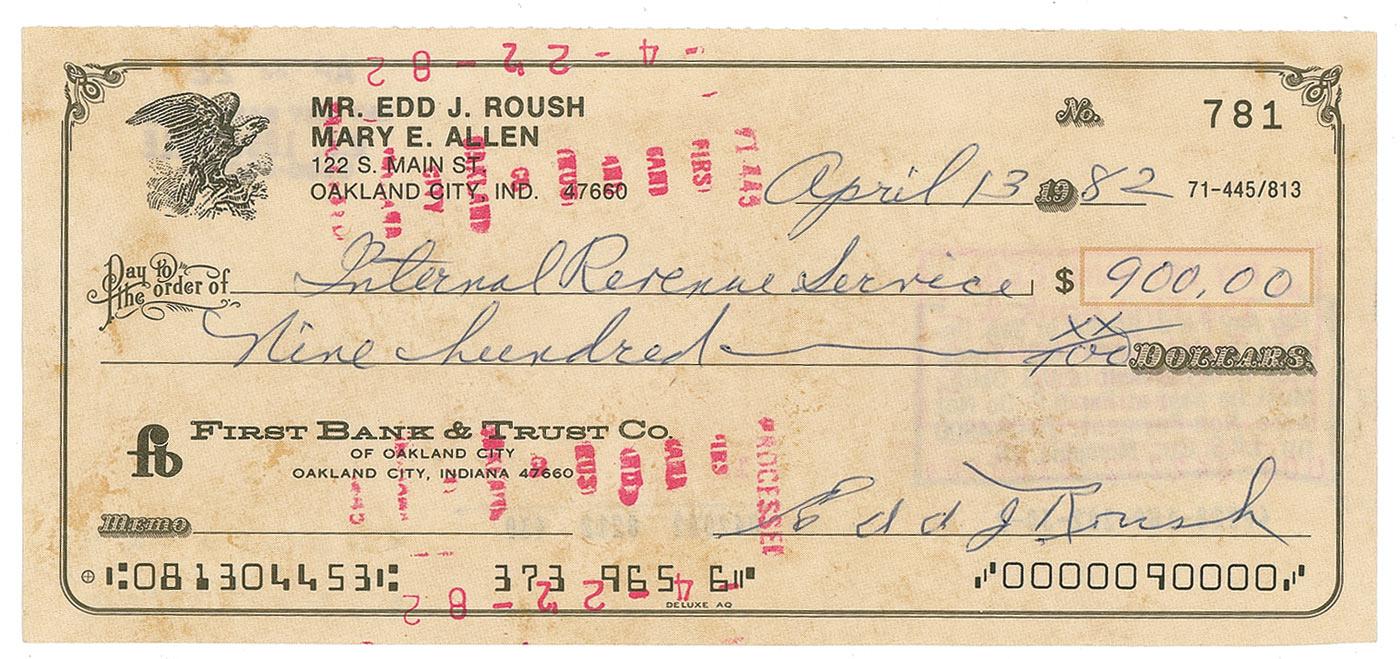 4-22-82
MR. EDD J. ROUSH
MARY E. ALLEN
122 S. MAIN ST.
OAKLAND CITY, IND. 47660
No. 781
April 13 1982 71-445/813
Pay to the order of Internal Revenue Service $ 900.00
Nine hundred xx/100 DOLLARS
FIRST BANK & TRUST CO.
OF OAKLAND CITY
OAKLAND CITY, INDIANA 47660
Memo Edd J Roush
081304453 373 965 6 0000090000
4-22-82
DELUXE AQ